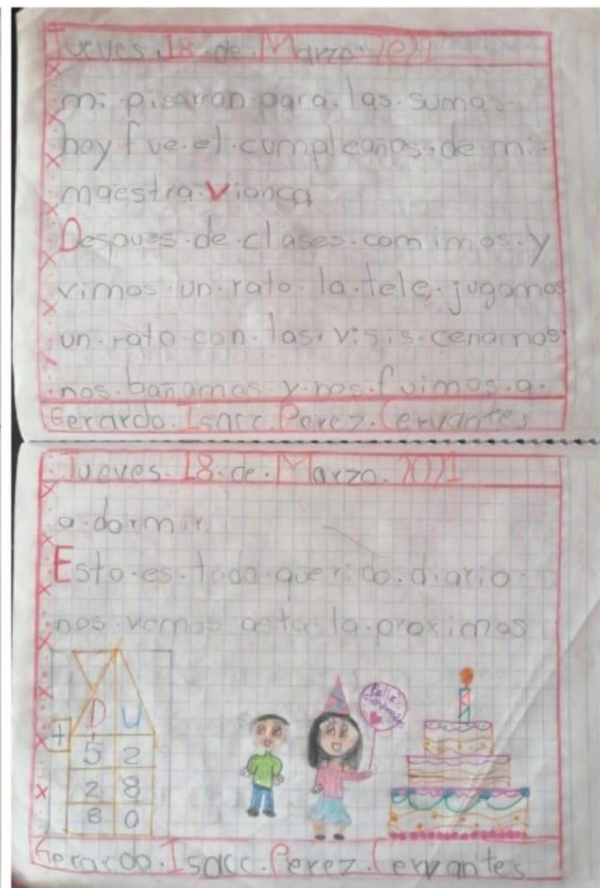 Jueves.18.de.Marzo.2021
mi.pisarron.para.las.sumas
hoy.fue.el.cumpleaños.de.mi.
maestra.Vianca
Despues.de.clases.comimos.y
vimos.un.rato.la.tele.jugamos
un.rato.con.las.visis.cenamos
nos.bañamos.y.nos.fuimos.a.
Gerardo.Isacc.Perez.Cervantes
Jueves.18.de.Marzo.2021
a.dormir
Esto.es.todo.querido.diario
nos.vemos asta.la.proximas
Feliz cumpleaños
D U
+
5 2
2 8
8 0
Gerardo.Isacc.Perez.Cervantes